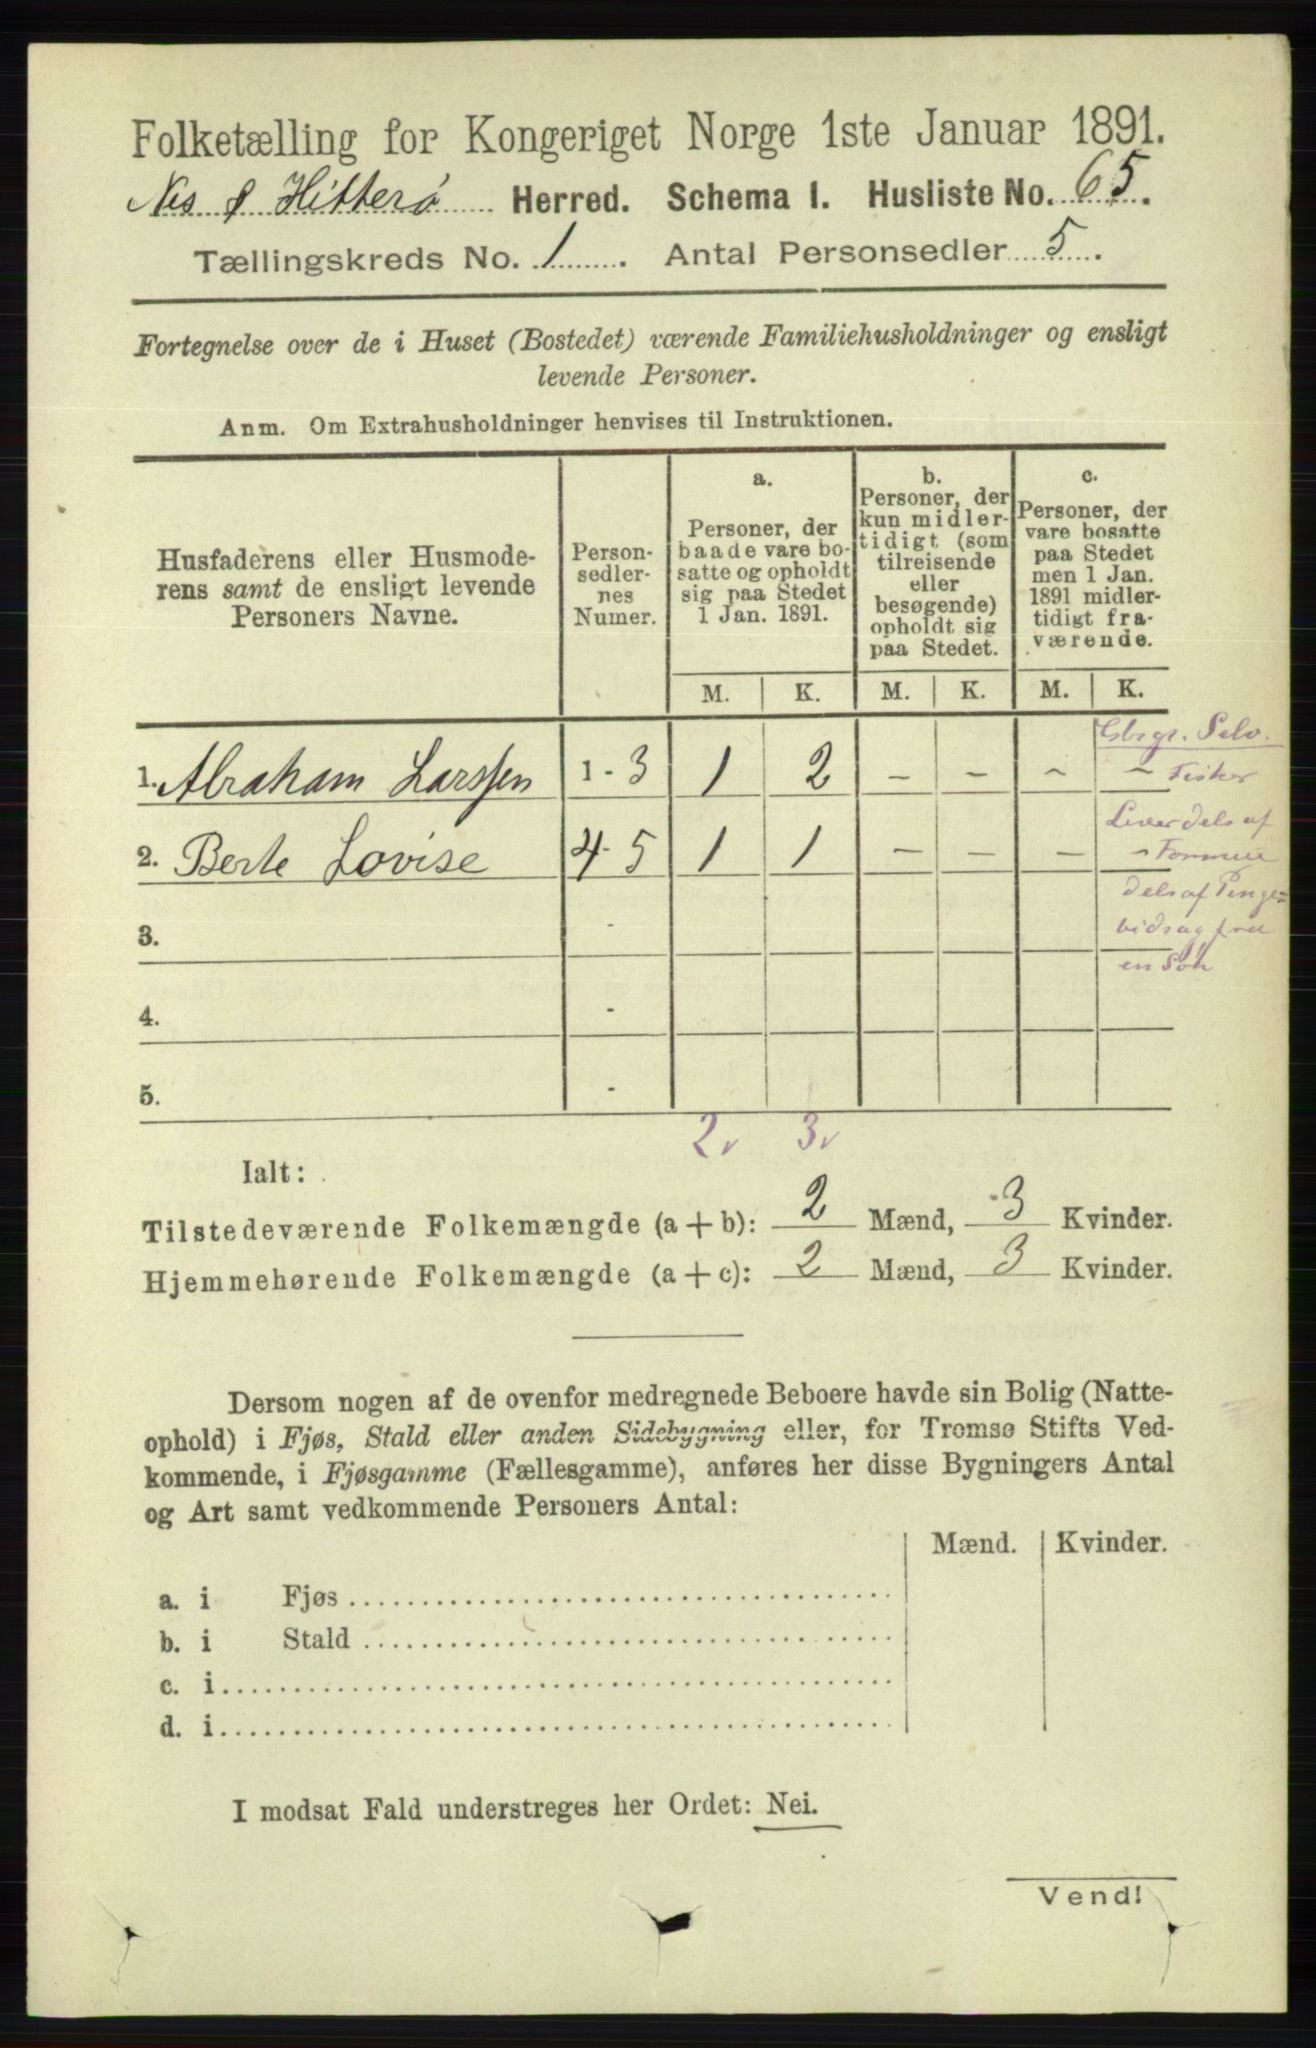 Folketælling for Kongeriget Norge 1ste Januar 1891.
Nes & Hitterø Herred. Schema I. Husliste No. 65.
Tællingskreds No. 1. Antal Personsedler 5.
Fortegnelse over de i Huset (Bostedet) værende Familiehusholdninger og ensligt
levende Personer.
Anm. Om Extrahusholdninger henvises til Instruktionen.
Husfaderens eller Husmode-
rens samt de ensligt levende
Personers Navne.
Person-
sedler-
nes
Numer.
a.
Personer, der
baade vare bo-
satte og opholdt
sig paa Stedet
1 Jan. 1891.
b.
Personer, der
kun midler-
tidigt (som
tilreisende
eller
besøgende)
opholdt sig
paa Stedet.
c.
Personer, der
vare bosatte
paa Stedet
men 1 Jan.
1891 midler-
tidigt fra-
værende.
M. K. M. K. M. K.
Gbrgr. Selv.
1. Abraham Larssen 1 - 3 1 2 - - - - Fisker
Lever dels af
2. Berte Lovise 4 - 5 1 1 - - - - Formue
dels af Penge=
3. - bidrag fra
en Søn
4. -
5. -
2 v 3 v
Ialt:
Tilstedeværende Folkemængde (a + b): 2 Mænd, 3 Kvinder.
Hjemmehørende Folkemængde (a + c): 2 Mænd, 3 Kvinder.
Dersom nogen af de ovenfor medregnede Beboere havde sin Bolig (Natte-
ophold) i Fjøs, Stald eller anden Sidebygning eller, for Tromsø Stifts Ved-
kommende, i Fjøsgamme (Fællesgamme), anføres her disse Bygningers Antal
og Art samt vedkommende Personers Antal:
Mænd. Kvinder.
a. i Fjøs
b. i Stald
c. i
d. i
I modsat Fald understreges her Ordet: Nei.
Vend!